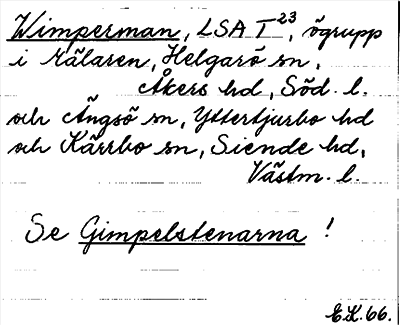 Wimperman, LSA T 23, ögrupp
i Mälaren, Helgarö sn,
Åkers hd, Söd. l.
och Ängsö sn, Yttertjurbo hd
och Kärrbo sn, Siende hd,
Västm. l.
Se Gimpelstenarna !
E.K. 66.